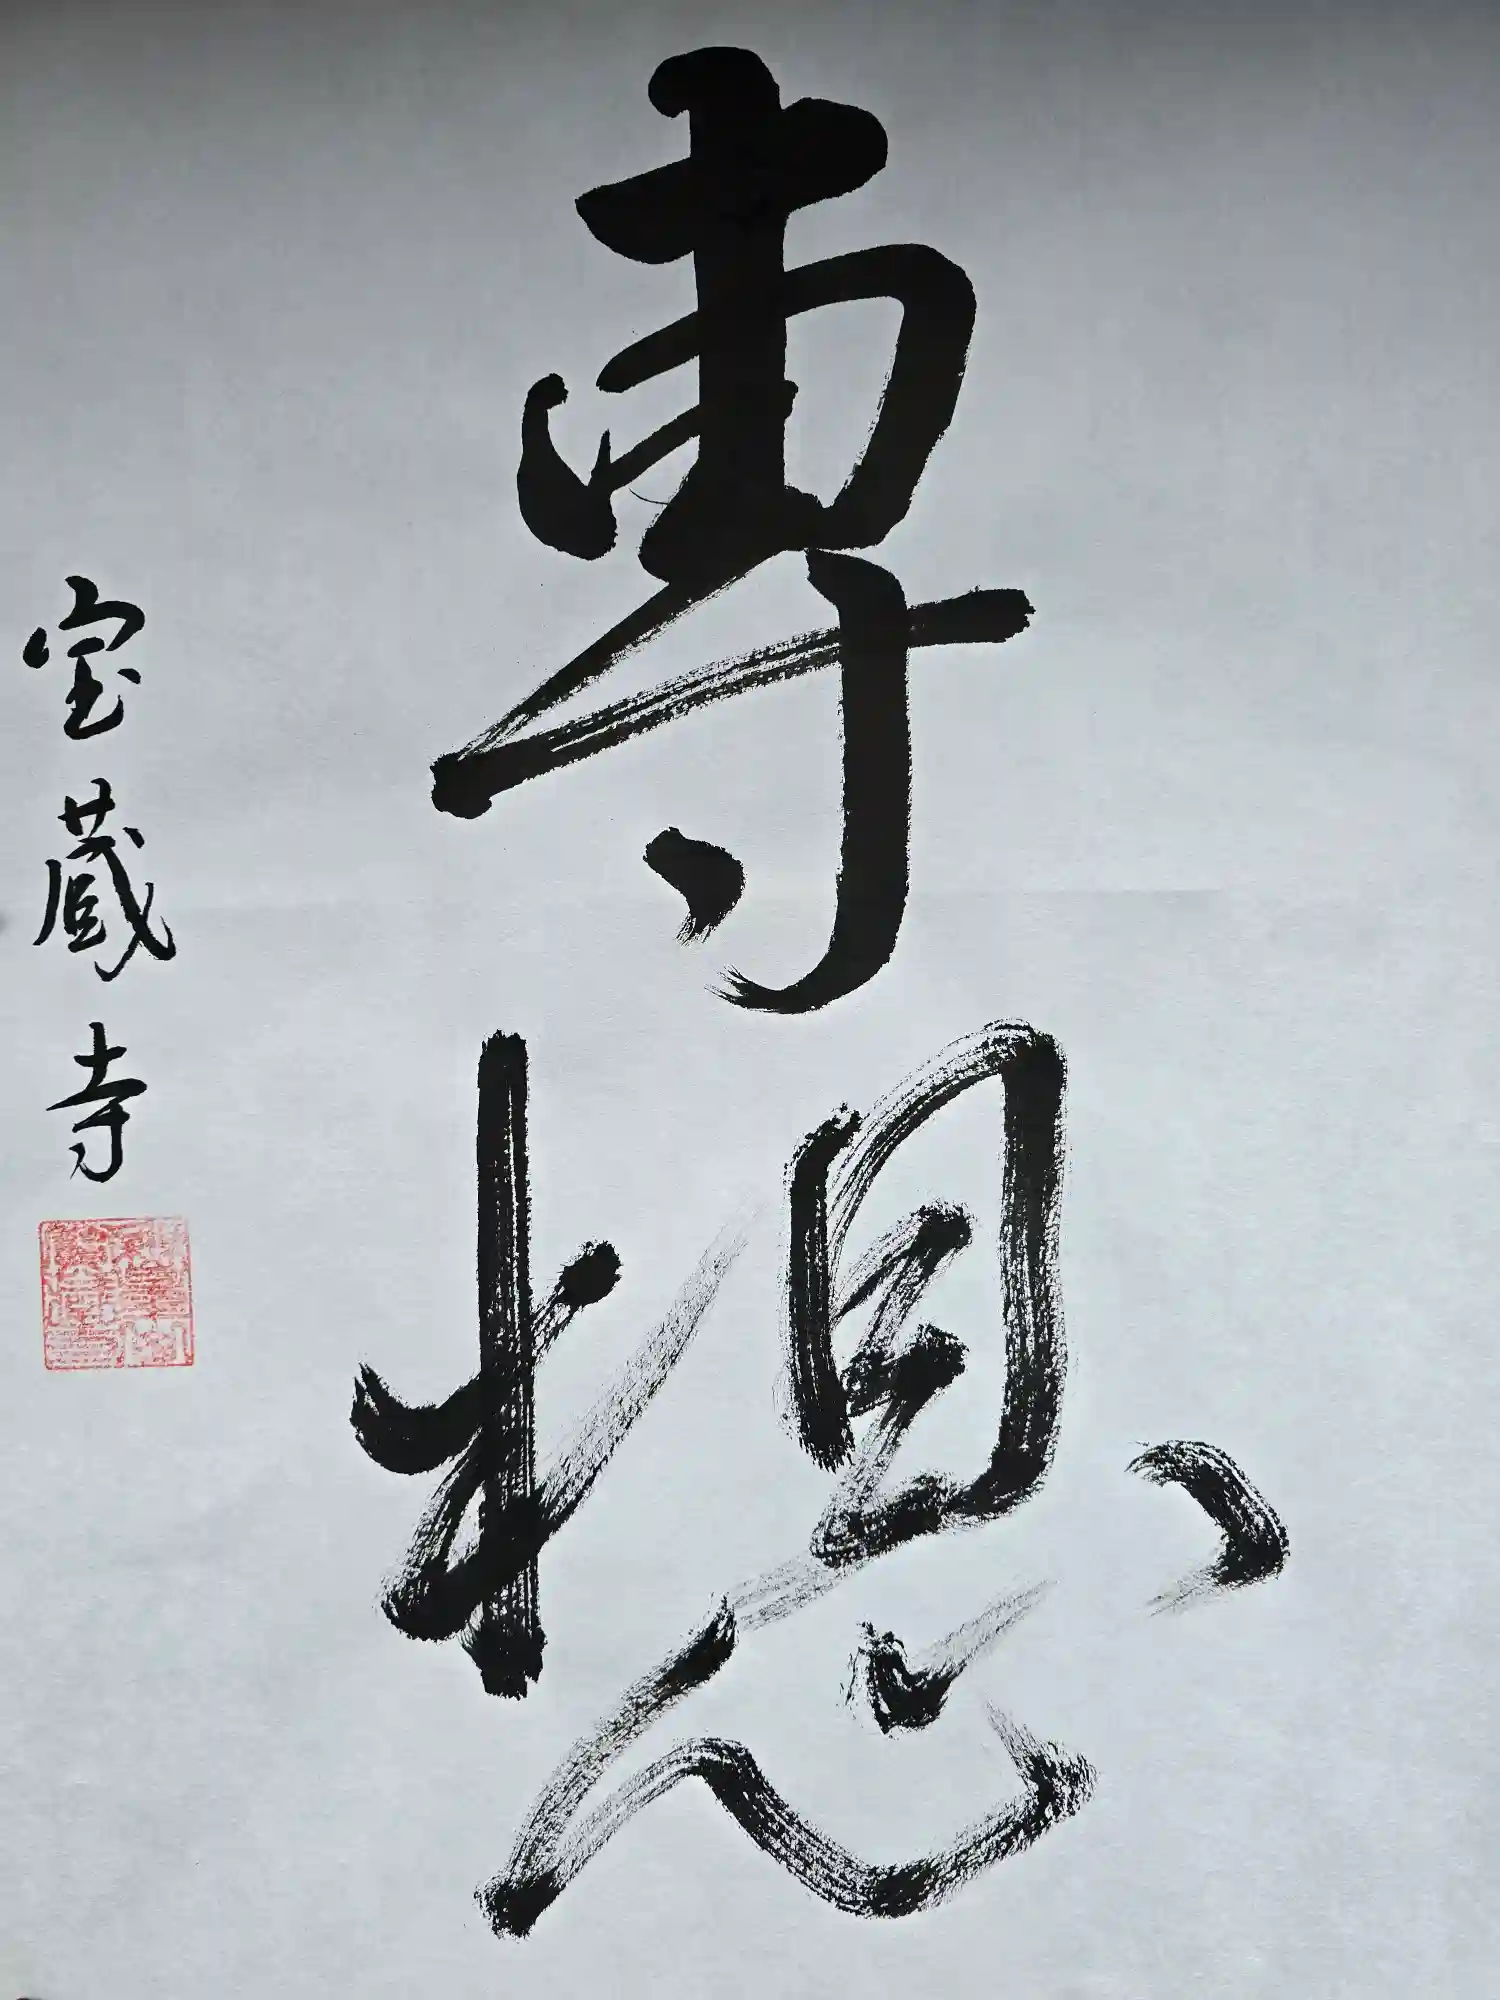 專想
宝蔵寺